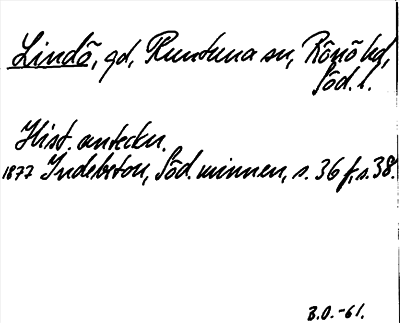 Lindö, gd, Runtuna sn, Rönö hd,
Söd. l.
Hist. anteckn.
1877 Indebetou, Söd. minnen, s. 36 f, s. 38.
B.O.-61.